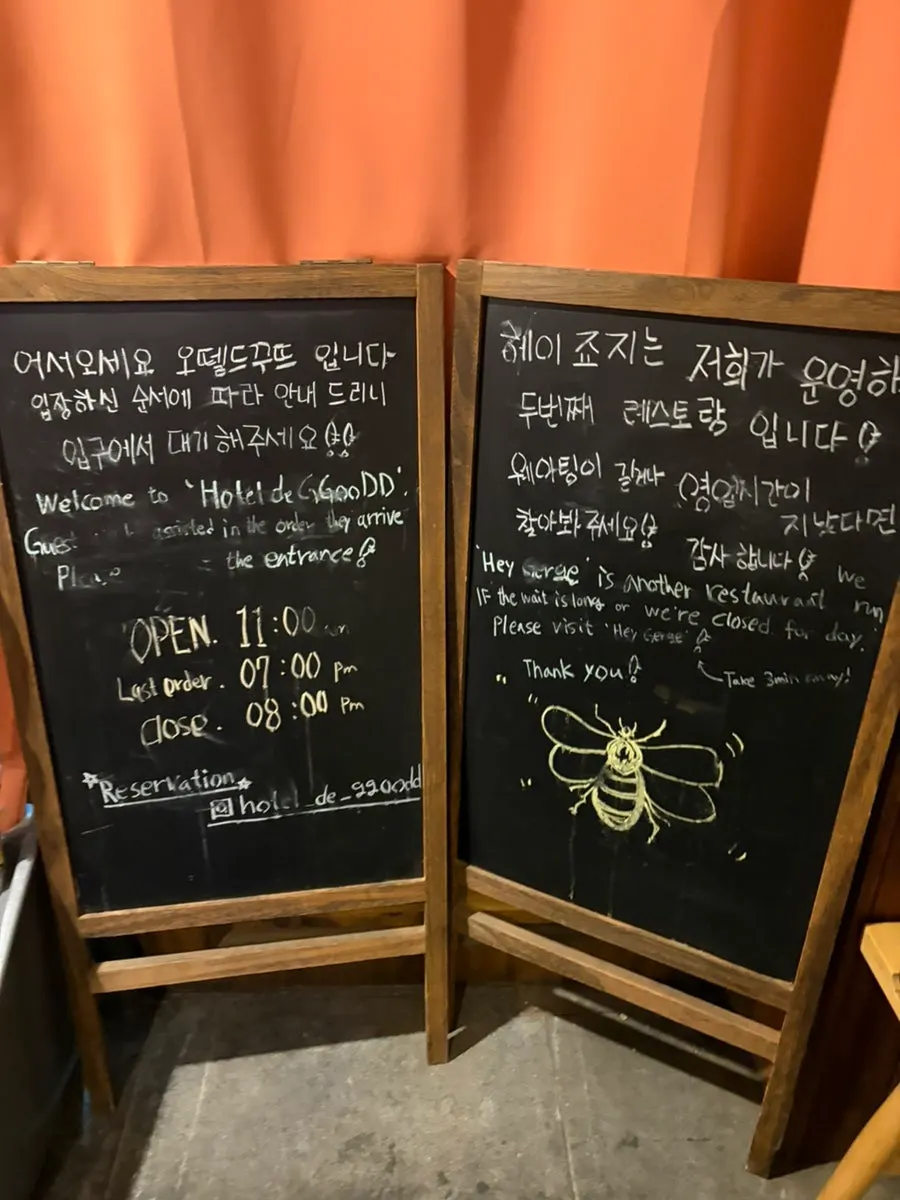 어서오세요 오뗄드꾸뜨 입니다
입장하신 순서에 따라 안내 드리니
입구에서 대기 해주세요
Welcome to 'Hotel de GGooDD'.
Guest assisted in the order they arrive
the entrance
OPEN. 11:00
Last order. 07:00 pm
Close. 08:00 pm
*Reservation*
hotel_de_ggoodd
헤이 죠지는 저희가 운영하
두번째 레스토랑 입니다
웨이팅이 길거나 영업시간이
지났다면
찾아봐주세요! 감사합니다!
'Hey Gerge' is another restaurant we run
If the wait is long or we're closed for day,
Please visit 'Hey Gerge'
Thank you!
Take 3min away!